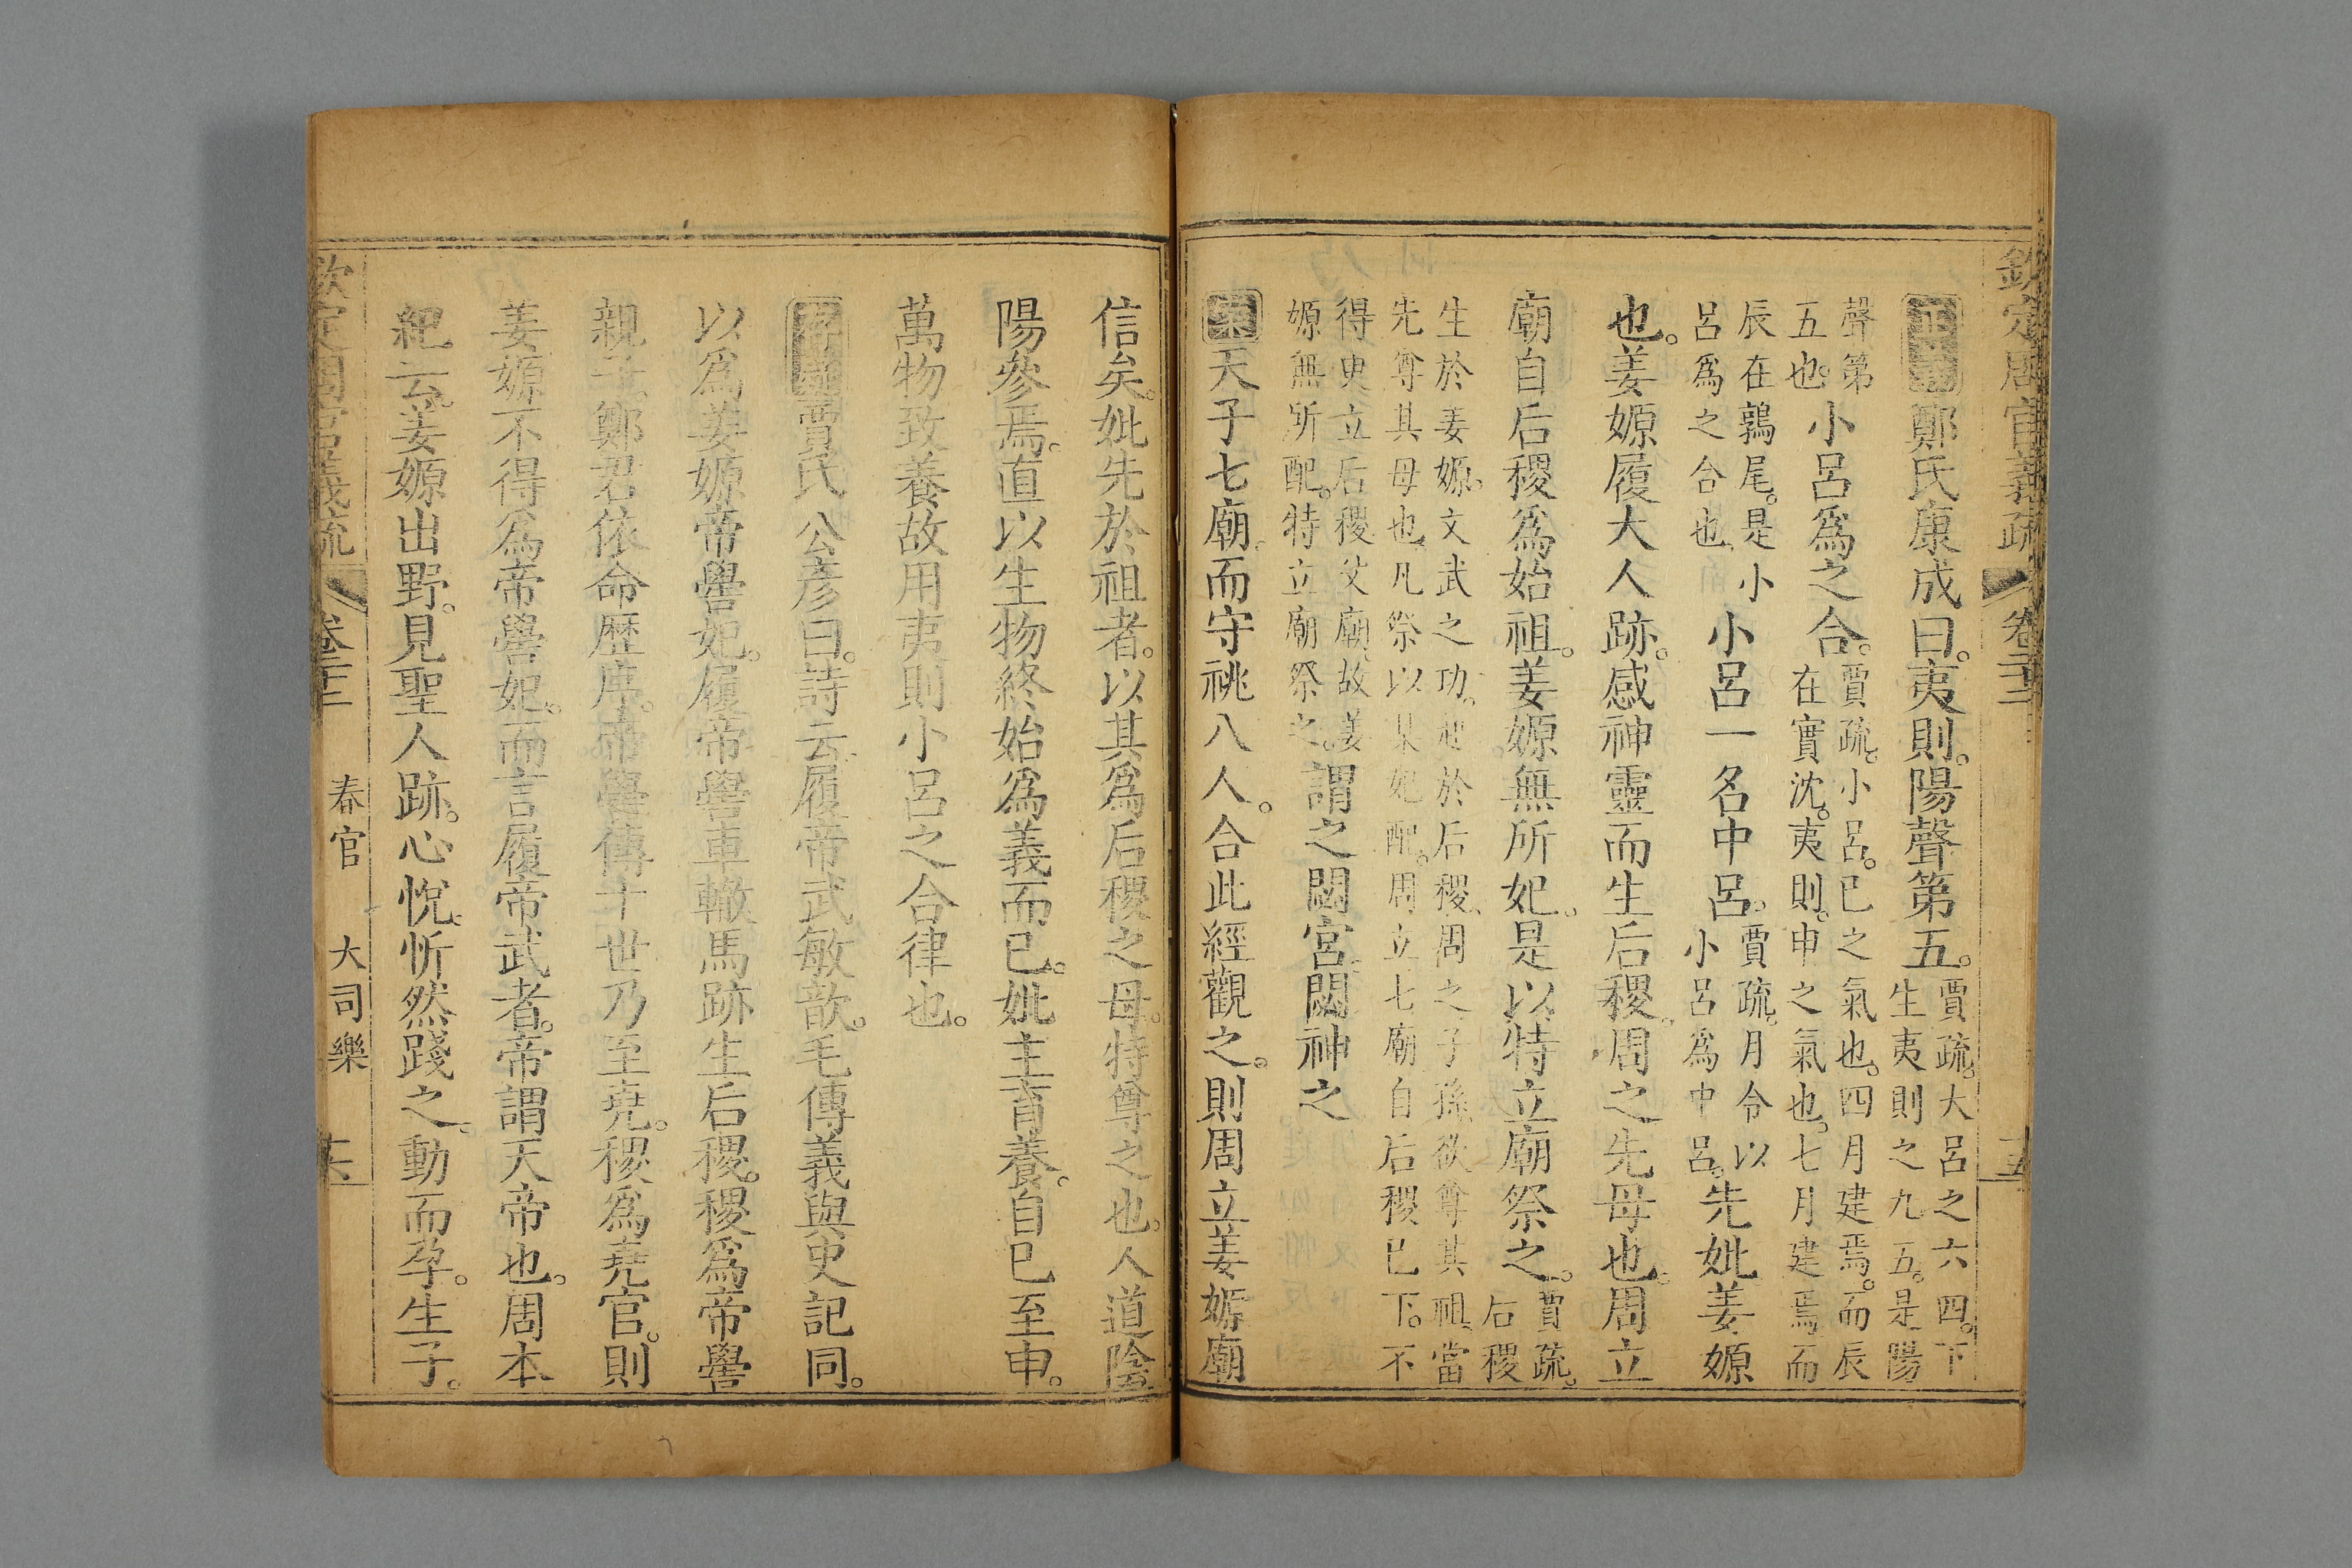 欽定周官義疏 卷二十二 十五
正義鄭氏康成曰。夷則。陽聲第五。賈疏。大呂之六四。下生夷則之九五。是陽
聲第五也。小呂爲之合。賈疏。小呂。巳之氣也。四月建焉。而辰在實沈。夷則。申之氣也。七月建焉。而
辰在鶉尾。是小呂爲之合也。小呂一名中呂。賈疏。月令以小呂爲中呂。先妣姜嫄
也。姜嫄履大人跡。感神靈而生后稷。周之先母也。周立
廟自后稷爲始祖。姜嫄無所妃。是以特立廟祭之。賈疏。后稷
生於姜嫄。文武之功。起於后稷。周之子孫。欲尊其祖。當先尊其母也。凡祭以某妃配。周立七廟自后稷已下。不
得更立后稷父廟。故姜嫄無所配。特立廟祭之。謂之閟宮。閟。神之
案天子七廟。而守祧八人。合此經觀之。則周立姜嫄廟
信矣。妣先於祖者。以其爲后稷之母。特尊之也。人道陰
陽參焉。直以生物終始爲義而已。妣主育養。自巳至申。
萬物致養故用夷則小呂之合律也。
存疑賈氏公彥曰。詩云。履帝武敏歆。毛傳義與史記同。
以爲姜嫄帝嚳妃。履帝嚳車轍馬跡生后稷。稷爲帝嚳
親子。鄭君依命歷序。帝嚳傳十世乃至堯。稷爲堯官。則
姜嫄不得爲帝嚳妃。而言履帝武者。帝謂天帝也。周本
紀云。姜嫄出野。見聖人跡。心悅忻然踐之。動而孕。生子。
欽定周官義疏 卷二十二 春官 大司樂 十六